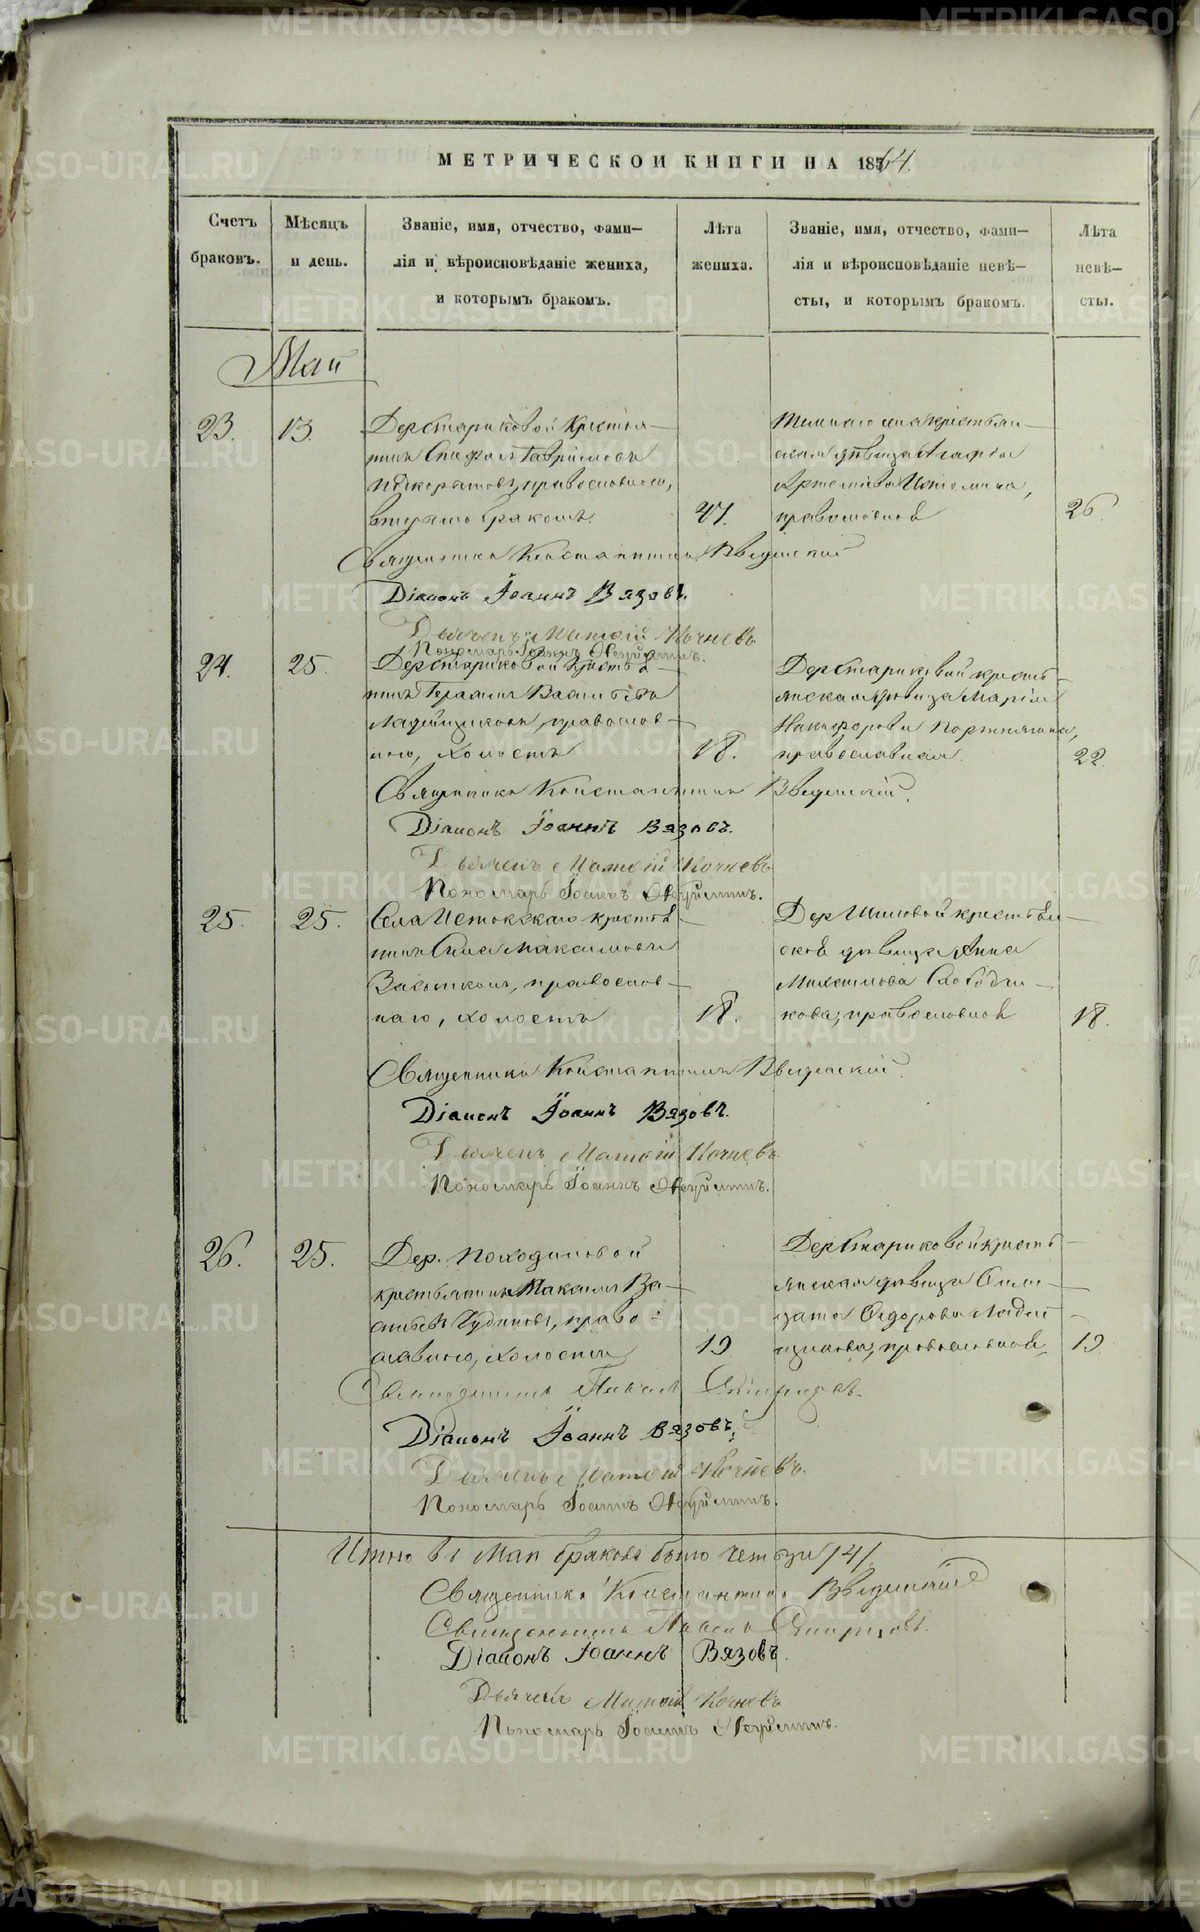 МЕТРИЧЕСКОЙ КНИГИ НА 1864.
Счетъ браковъ.
Мѣсяцъ и день.
Званіе, имя, отчество, фами-
лія и вѣроисповѣданіе жениха,
и которымъ бракомъ.
Лѣта жениха.
Званіе, имя, отчество, фами-
лія и вѣроисповѣданіе невѣ-
сты, и которымъ бракомъ.
Лѣта невѣ-
сты.
Май
23. 13.
Дер Стариковой крестья-
нинъ Гавриловъ
православнаго,
вторымъ бракомъ.
47.
крестьян-
ская дѣвица Агафія
Артемьева Истомина,
православной
26.
Священникъ Константинъ Введенскій
Діаконъ Іоаннъ Вязовъ.
Дьячекъ Матѳій Кочневъ
Пономарь Іоаннъ
24. 25.
Дер Стариковой крестья-
нинъ Герасимъ Васильевъ
Ладейщиковъ, православ-
наго, холостъ
18.
Дер Стариковой кресть-
янская дѣвица Марія
Никифорова Портнягина,
православная.
22.
Священникъ Константинъ Введенскій.
Діаконъ Іоаннъ Вязовъ.
Дьячекъ Матѳій Кочневъ
Пономарь Іоаннъ
25. 25.
Села Истокскаго крестья-
нинъ Сила Максимовъ
православ-
наго, холостъ
18.
Дер Шиловой крестьян-
ской дѣвица Анна
Михаилова Слободчи-
кова, православной
18.
Священникъ Константинъ Введенскій.
Діаконъ Іоаннъ Вязовъ.
Дьячекъ Матѳій Кочневъ
Пономарь Іоаннъ
26. 25.
Дер. Походиловой
крестьянинъ Максимъ Ва-
сильевъ Чудиновъ, право-
славнаго, холостъ
19
Дер Стариковой кресть-
янская дѣвица Ели-
зата Ѳедорова Ладей-
щикова, православной,
19.
Священникъ Павелъ
Діаконъ Іоаннъ Вязовъ.
Дьячекъ Матѳій Кочневъ.
Пономарь Іоаннъ
Итого въ Маи браковъ было четыре /4/.
Священникъ Константинъ Введенскій
Священникъ Павелъ
Діаконъ Іоаннъ Вязовъ.
Дьячекъ Матѳій Кочневъ
Пономарь Іоаннъ
METRIKI.GASO-URAL.RU